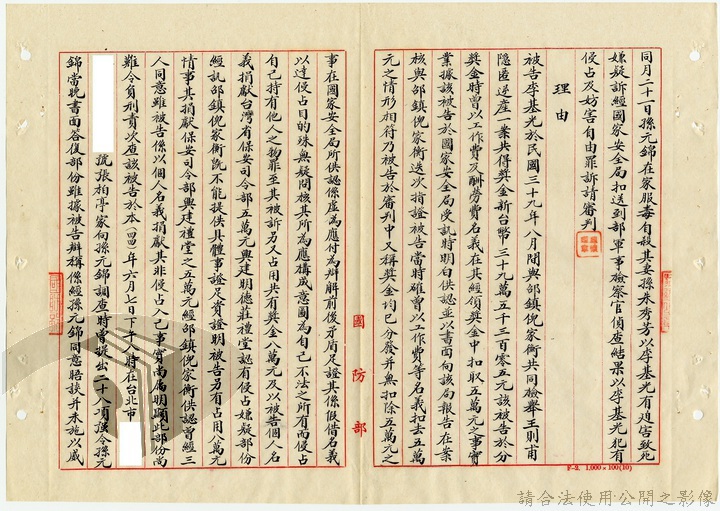 同月二十一日孫元錦在家服毒自殺其妻孫朱秀芳以李基光有迫害致死
嫌疑訴經國家安全局扣送到部軍事檢察官偵查結果以李基光犯有
侵占及妨害自由罪訴請審判
理由
被告李基光於民國三十九年八月間與邵鎮倪家衡共同檢舉王則甫
隱匿逆產一案共得獎金新台幣三十九萬五千三百零五元該被告於分
獎金時曾以工作費及酬勞費名義在其經領獎金中扣取五萬元之事實
業據該被告於國家安全局受訊時明白供認並以書面向該局報告在案
核與邵鎮倪家衡迭次指證被告當時確曾以工作費等名義扣去五萬
元之情形相符乃被告於審判中又稱獎金均已分發并無扣除五萬元之
國防部
事在國家安全局所供認係虛為應付為辯解前後矛盾足證其係假借名義
以達侵占目的殊無疑問核其所為應構成意圖為自己不法之所有而侵占
自己持有他人之物罪至其被訴另又占用共有獎金八萬元及以被告個人名
義捐獻台灣省保安司令部五萬元興建明德莊禮堂認有侵占嫌疑部份
經訊邵鎮倪家衡既不能提供具體事證足資證明被告另有占用八萬元
情事其捐獻保安司令部興建禮堂之五萬元經邵鎮倪家衡供認曾經三
人同意雖被告係以個人名義捐獻其非侵占入己事實尚屬明顯此部份尚
難令負刑責次查該被告於本(四四)年六月七日下午八時在台北市
號張柏亭家向孫元錦調查時曾提出二十八項強令孫元
錦當晚書面答復部份雖據被告辯稱係經孫元錦同意晤談并未施以威
F-2. 1,000×100(10)
請合法使用公開之影像